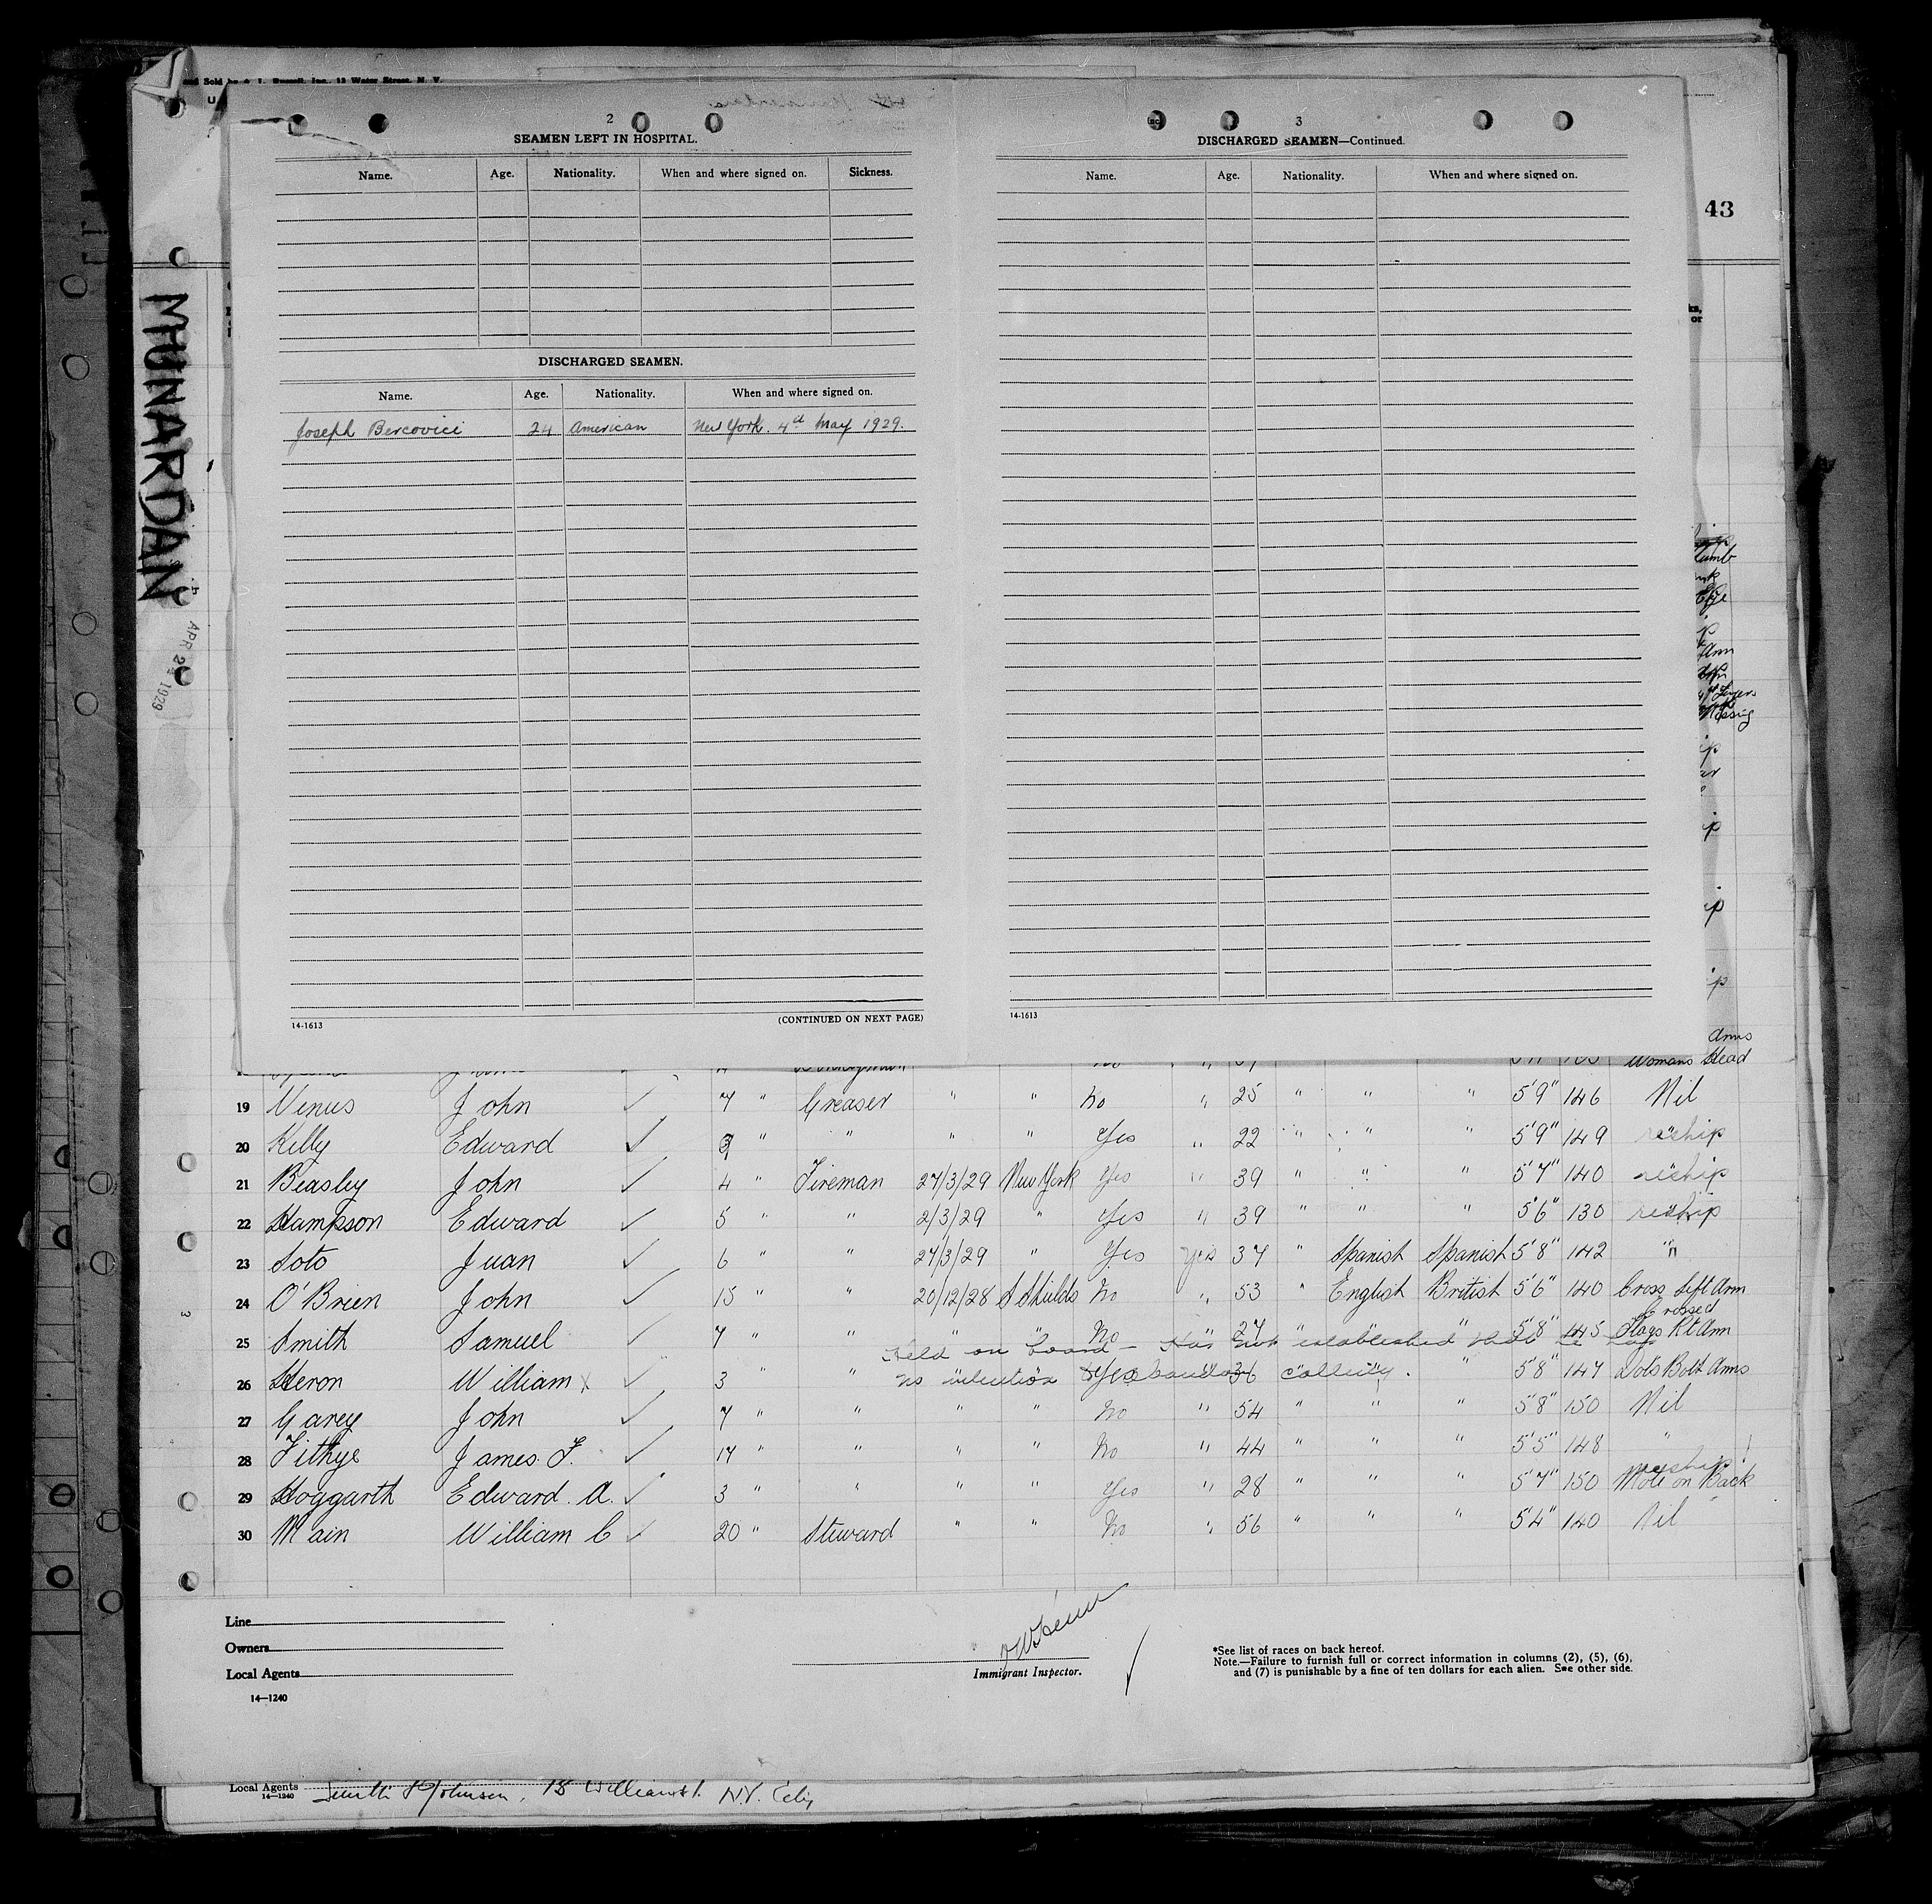 and Sold by A. L. Russell, Inc., 12 Water Street, N. Y.
U
43
MUNARDAN
APR 24 1929
2
SEAMEN LEFT IN HOSPITAL.
Name. Age. Nationality. When and where signed on. Sickness.
DISCHARGED SEAMEN.
Name. Age. Nationality. When and where signed on.
Joseph Bercovici 24 American New York. 4th May 1929.
14-1613 (CONTINUED ON NEXT PAGE)
3
DISCHARGED SEAMEN—Continued.
Name. Age. Nationality. When and where signed on.
14-1613
Arms
Womans Head
19 Venus John ✓ 7 " Greaser " " No " 25 " " " 5'9" 146 Nil
20 Kelly Edward ✓ 3 " " " " Yes " 22 " " " 5'9" 149 reship
21 Beasley John ✓ 4 " Fireman 27/3/29 New York Yes " 39 " " " 5'7" 140 reship
22 Hampson Edward ✓ 5 " " 2/3/29 " Yes " 39 " " " 5'6" 130 reship
23 Soto Juan ✓ 6 " " 27/3/29 " Yes yes 37 " Spanish Spanish 5'8" 142 "
24 O'Brien John ✓ 15 " " 20/12/28 S Shields No " 53 " English British 5'6" 140 Cross Left Arm
25 Smith Samuel ✓ 7 " " " " No " 27 " " " 5'8" 145 Crossed Flags Rt Arm
Held on board - Has not established that he has
no intention to abandon calling.
26 Heron William x ✓ 3 " " Yes 36 " 5'8" 147 Dots Both Arms
27 Garey John ✓ 7 " " " " No " 54 " " " 5'8" 150 Nil
28 Fithye James F. ✓ 17 " " " " No " 44 " " " 5'5" 148 "
reship
29 Hoggarth Edward. A. ✓ 3 " " " " Yes " 28 " " " 5'7" 150 Mole on Back
30 Main William C ✓ 20 " Steward " " No " 56 " " " 5'4" 140 Nil
Line
Owners
Local Agents
14—1240
Immigrant Inspector.
*See list of races on back hereof.
Note.—Failure to furnish full or correct information in columns (2), (5), (6),
and (7) is punishable by a fine of ten dollars for each alien. See other side.
Local Agents Smith & Johnson, 15 William St. N.Y. City
14—1240